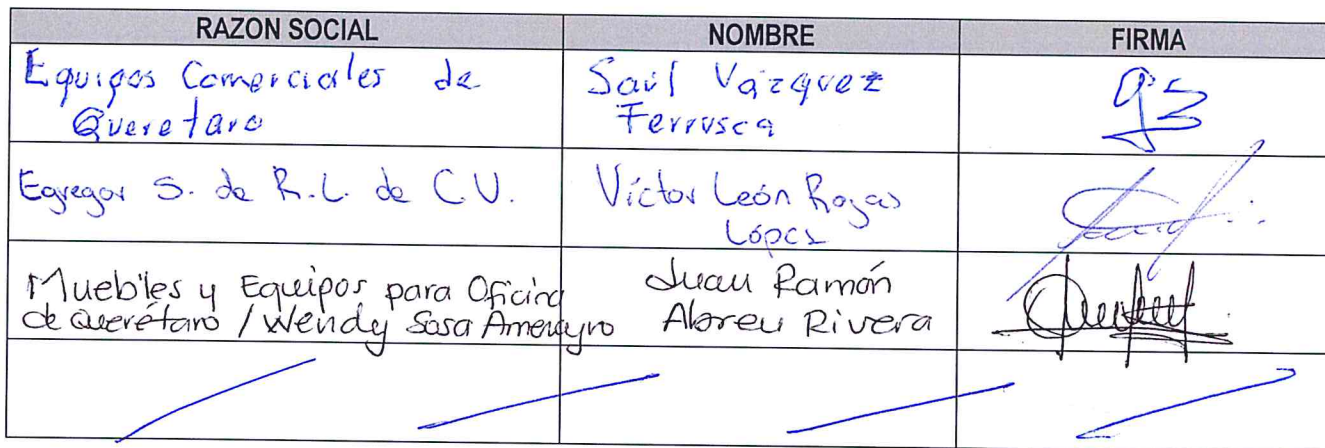 RAZON SOCIAL NOMBRE FIRMA
Equipos Comerciales de
Queretaro
Saúl Vázquez
Ferrusca
Egregor S. de R.L. de C.V.
Víctor León Rojas
López
Muebles y Equipos para Oficina
de Querétaro / Wendy Sosa
Juan Ramón
Abreu Rivera